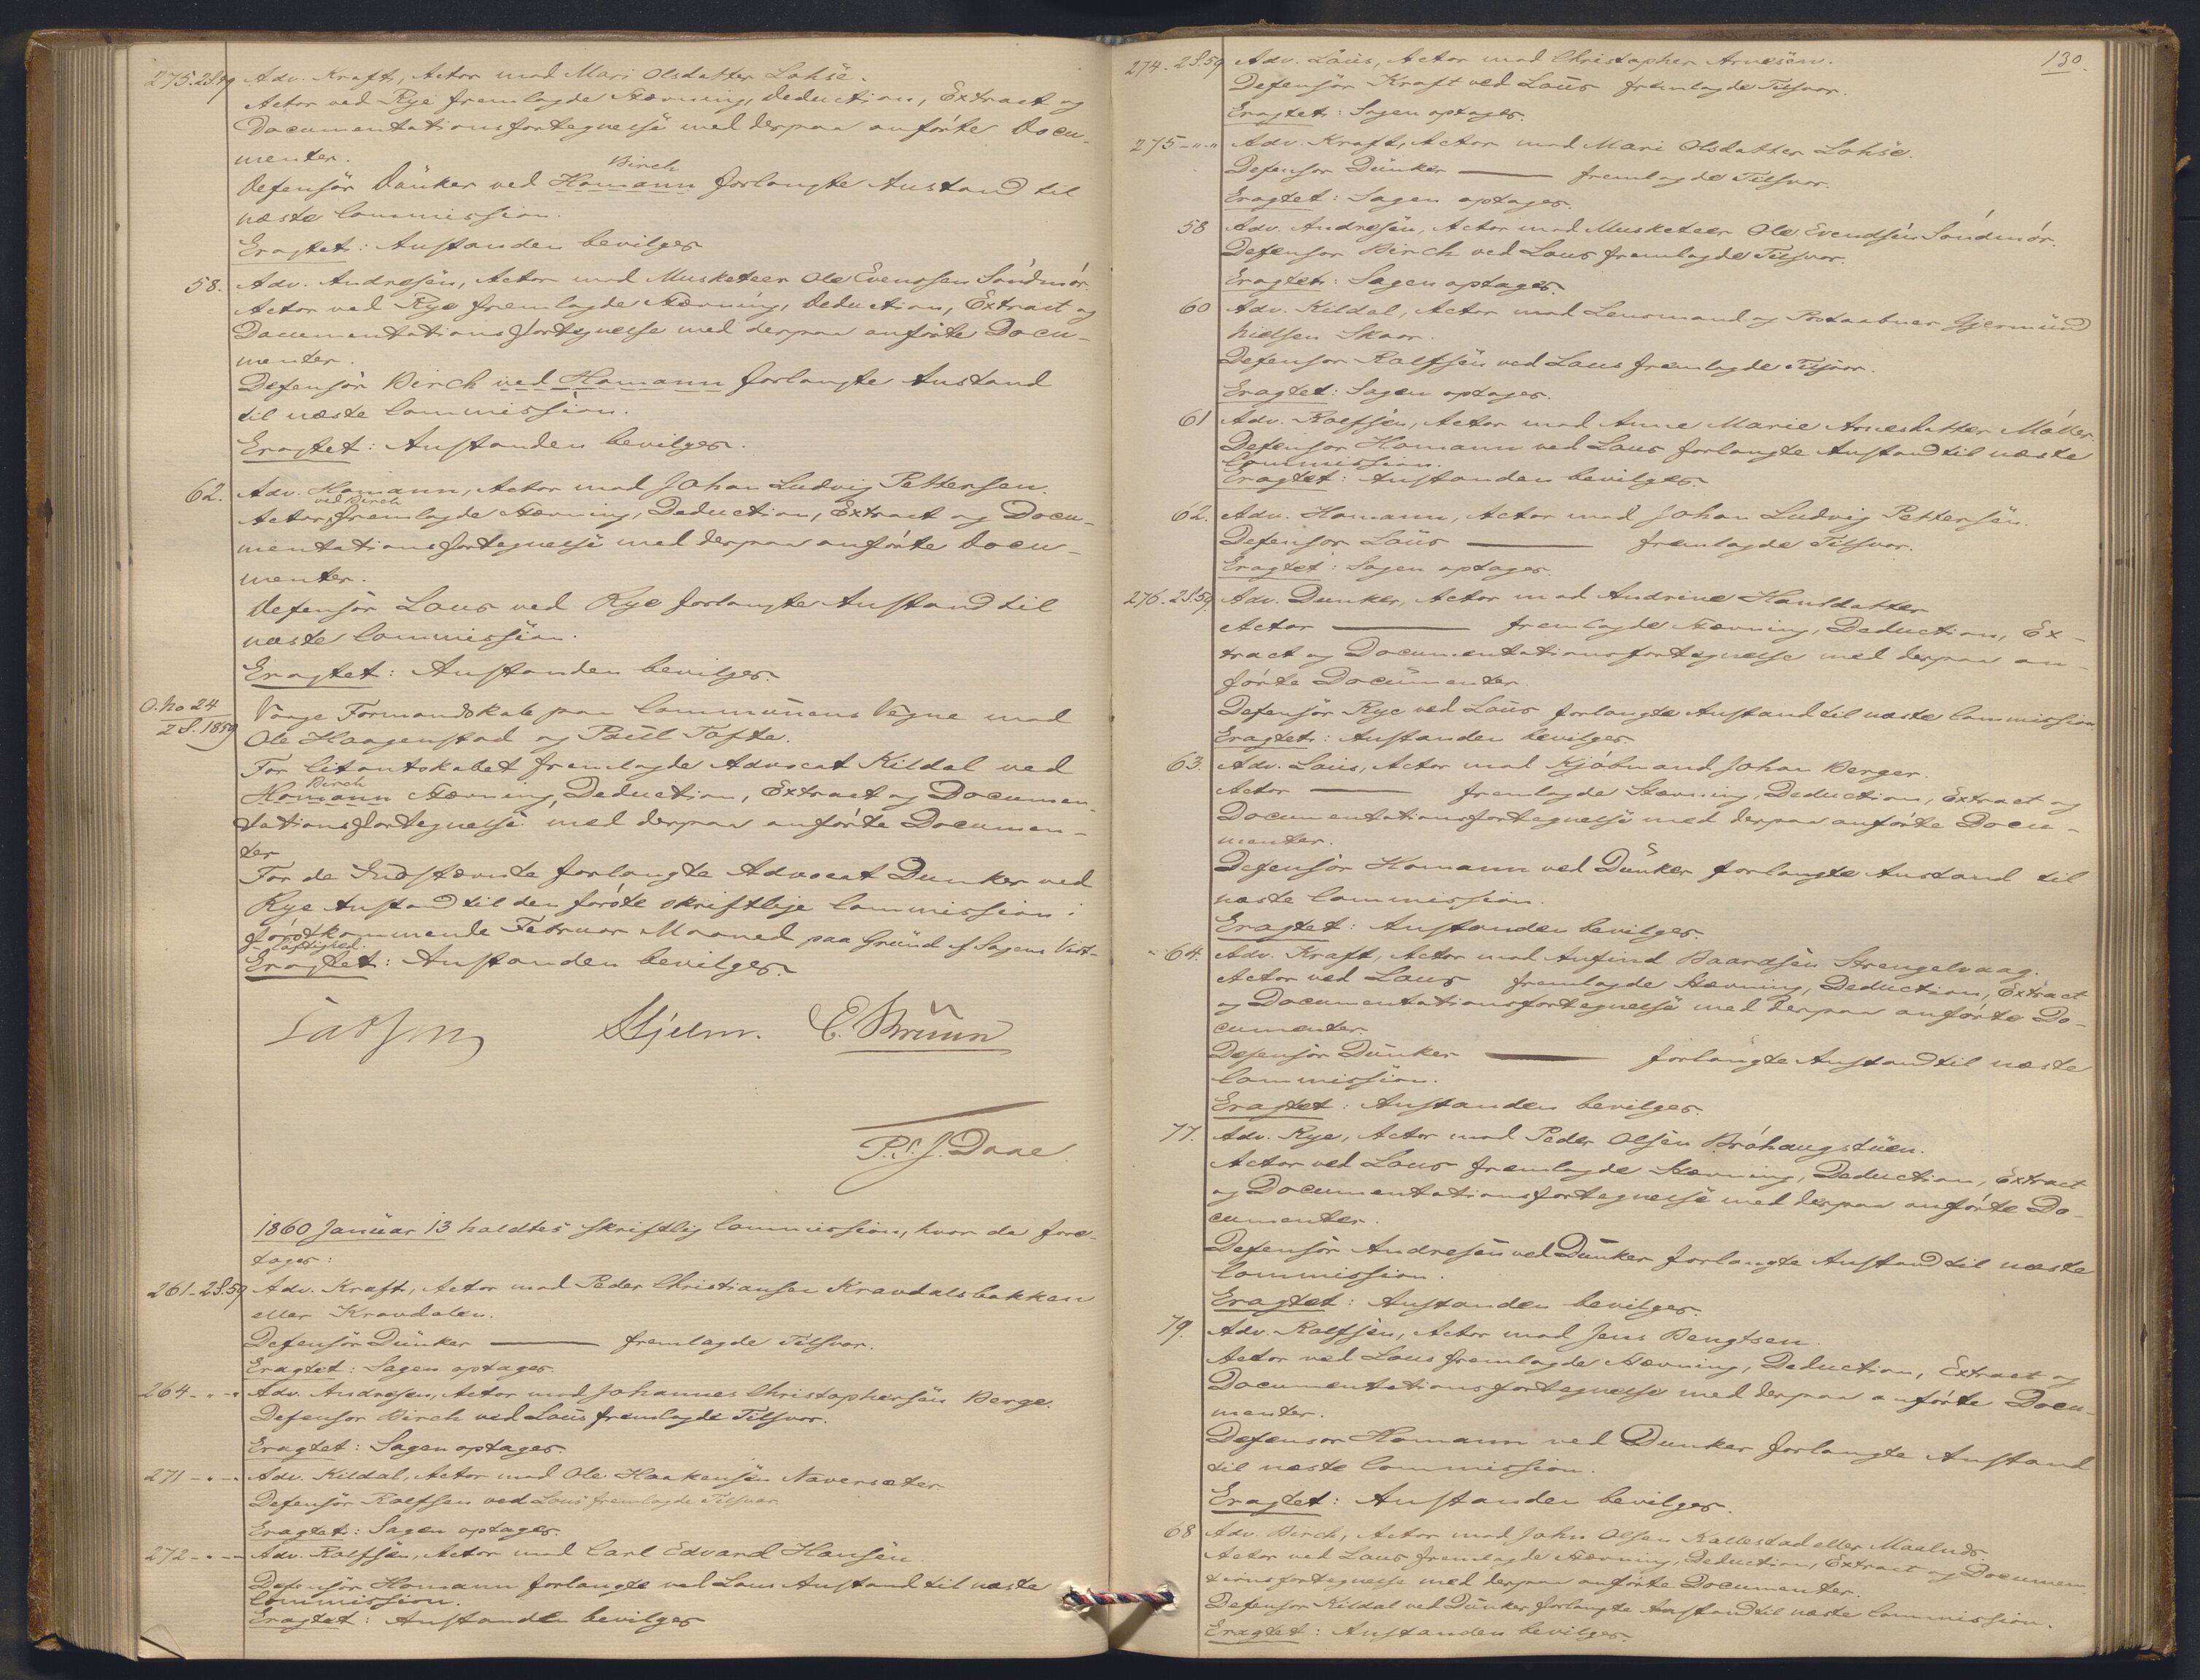 275. 2S.59 Adv. Kraft, Actor mod Mari Olsdatter Lohse.
Actor ved Rye fremlagde Stævning, Deduction, Extract og
Documentationsfortegnelse med derpaa anførte Docu-
menter.
Birch
Defensor Dunker ved Homann forlangte Anstand til
næste Commission.
Eragtet: Anstanden bevilges.
58. Adv. Andresen, Actor mod Musketeer Ole Evensen Søndmør.
Actor ved Rye fremlagde Stævning, Deduction, Extract og
Documentationsfortegnelse med derpaa anførte Docu-
menter.
Defensor Birch ved Homann forlangte Anstand
til næste Commission.
Eragtet: Anstanden bevilges.
62. Adv. Homann, Actor mod Johan Ludvig Pettersen.
ved Birch
Actor fremlagde Stævning, Deduction, Extract og Docu-
mentationsfortegnelse med derpaa anførte Docu-
menter.
Defensor Lous ved Rye forlangte Anstand til
næste Commission.
Eragtet: Anstanden bevilges.
O. No 24 Vaage Formandskab paa Communens Vegne mod
2 S. 1859 Ole Haagenstad og Paul Tofte.
For Citantskabet fremlagde Advocat Kildal ved
Birch
Homann Stævning, Deduction, Extract og Documen-
tationsfortegnelse med derpaa anførte Documen-
ter
For de Indstævnte forlangte Advocat Dunker ved
Rye Anstand til den første skriftlige Commission i
førstkommende Februar Maaned paa Grund af Sagens Vidt-
løftighed.
Eragtet: Anstanden bevilges.
Lasson Hjelm. C. Bruun
P. S. J. Daae
1860 Januar 13 holdtes skriftlig Commission, hvor da fore-
tages:
261 - 2S.59 Adv. Kraft, Actor mod Peder Christiansen Kravdalsbakken
eller Kravdalen.
Defensor Dunker — fremlagde Tilsvar.
Eragtet: Sagen optages.
264 - " - " Adv. Andresen, Actor mod Johannes Christophersen Berge.
Defensor Birch ved Lous fremlagde Tilsvar.
Eragtet: Sagen optages.
271 - " - " Adv. Kildal, Actor mod Ole Haakensen Naversæter
Defensor Rolfsen ved Lous fremlagde Tilsvar
Eragtet: Sagen optages.
272 - " - " Adv. Rolfsen, Actor mod Carl Edvard Hansen.
Defensor Homann forlangte ved Lous Anstand til næste
Commission.
Eragtet: Anstanden bevilges
130.
274. 2S.59 Adv. Lous, Actor mod Christopher Arnesen.
Defensor Kraft ved Lous fremlagde Tilsvar.
Eragtet: Sagen optages.
275 - " - " Adv. Kraft, Actor mod Mari Olsdatter Lohse.
Defensor Dunker — fremlagde Tilsvar.
Eragtet: Sagen optages.
58 Adv. Andresen, Actor mod Musketeer Ole Evendsen Søndmør.
Defensor Birch ved Lous fremlagde Tilsvar.
Eragtet: Sagen optages.
60 Adv. Kildal, Actor mod Lensmand og Postaabner Gjermund
Nielsen Skaar.
Defensor Rolfsen ved Lous fremlagde Tilsvar.
Eragtet: Sagen optages.
61 Adv. Rolfsen, Actor mod Anne Marie Arnesdatter Møller.
Defensor Homann ved Lous forlangte Anstand til næste
Commission.
Eragtet: Anstanden bevilges.
62. Adv. Homann, Actor mod Johan Ludvig Pettersen.
Defensor Lous — fremlagde Tilsvar.
Eragtet: Sagen optages.
276. 2S.59. Adv. Dunker, Actor mod Andrine Hansdatter
Actor — fremlagde Stævning, Deduction, Ex-
tract og Documentationsfortegnelse med derpaa an-
førte Documenter.
Defensor Rye ved Lous forlangte Anstand til næste Commission.
Eragtet: Anstanden bevilges.
63. Adv. Lous, Actor mod Kjøbmand Johan Berger.
Actor — fremlagde Stævning, Deduction, Extract og
Documentationsfortegnelse med derpaa anførte Docu-
menter.
Defensor Homann ved Dunker forlangte Anstand til
næste Commission.
Eragtet: Anstanden bevilges.
64. Adv. Kraft, Actor mod Anfind Baardsen Strengelvaag.
Actor ved Lous fremlagde Stævning, Deduction, Extract
og Documentationsfortegnelse med derpaa anførte Do-
cumenter.
Defensor Dunker — forlangte Anstand til næste
Commission.
Eragtet: Anstanden bevilges.
77. Adv. Rye, Actor mod Peder Olsen Bråhaugstuen.
Actor ved Lous fremlagde Stævning, Deduction, Extract
og Documentationsfortegnelse med derpaa anførte Do-
cumenter.
Defensor Andresen ved Dunker forlangte Anstand til næste
Commission.
Eragtet: Anstanden bevilges.
79. Adv. Rolfsen, Actor mod Jens Bengtsen.
Actor ved Lous fremlagde Stævning, Deduction, Extract og
Documentationsfortegnelse med derpaa anførte Docu-
menter.
Defensor Homann ved Dunker forlangte Anstand
til næste Commission.
Eragtet: Anstanden bevilges.
68 Adv. Birch, Actor mod John Olsen Kallestad eller Maalnds
Actor ved Lous fremlagde Stævning, Deduction, Extract og Documen-
tationsfortegnelse med derpaa anførte Documenter.
Defensor Kildal ved Dunker forlangte Anstand til næste Commission.
Eragtet: Anstanden bevilges.